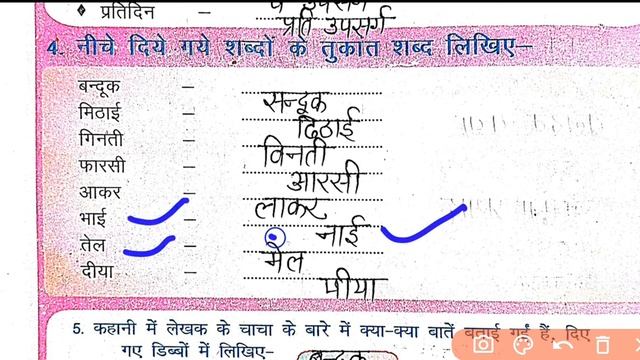 ♦ प्रतिदिन –
प्रति उपसर्ग
4. नीचे दिये गये शब्दों के तुकांत शब्द लिखिए–
बन्दूक – सन्दूक
मिठाई – ढिठाई
गिनती – विनती
फारसी – आरसी
आकर – लाकर
भाई – नाई
तेल – मेल
दीया – पीया
5. कहानी में लेखक के चाचा के बारे में क्या-क्या बातें बताई गईं हैं, दिए
गए डिब्बों में लिखिए–